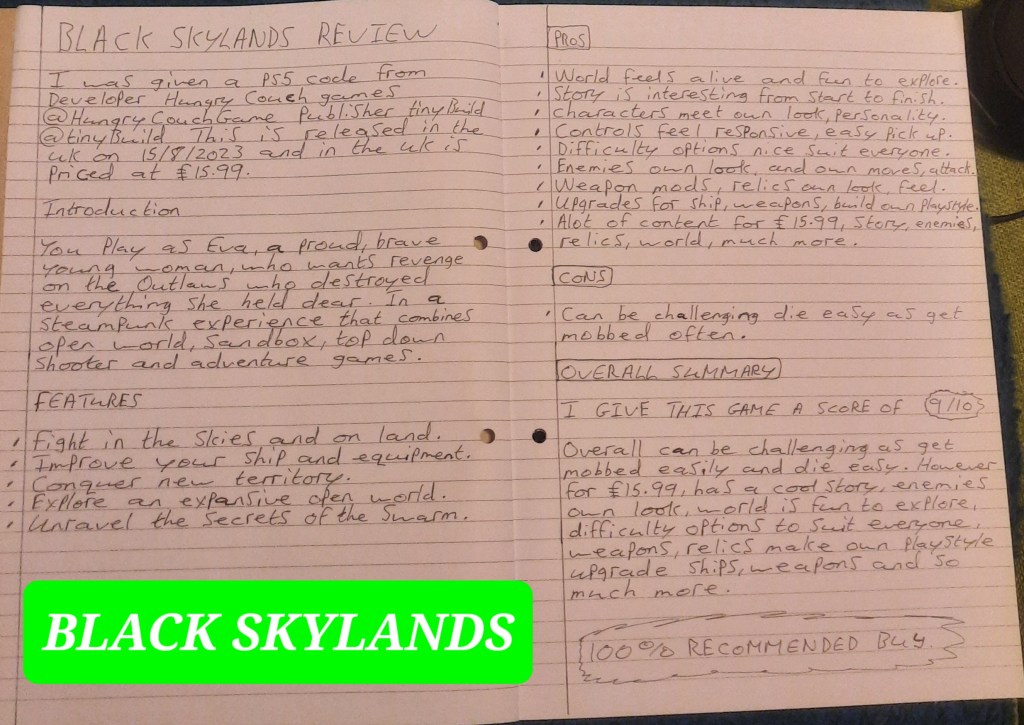 BLACK SKYLANDS REVIEW
I was given a PS5 code from
Developer Hungry Couch games
@HungryCouchGame Publisher tinyBuild
@tinyBuild This is released in the
uk on 15/8/2023 and in the uk is
Priced at £15.99.
Introduction
You Play as Eva, a proud, brave
young woman, who wants revenge
on the Outlaws who destroyed
everything she held dear. In a
Steampunk experience that combines
open world, sandbox, top down
shooter and adventure games.
FEATURES
• Fight in the Skies and on land.
• Improve your ship and equipment.
• Conquer new territory.
• Explore an expansive open world.
• Unravel the Secrets of the Swarm.
PROS
• World feels alive and fun to explore.
• Story is interesting from start to finish.
• Characters meet own look, Personality.
• Controls feel responsive, easy Pick up.
• Difficulty options nice suit everyone.
• Enemies own look, and own moves, attack.
• Weapon mods, relics own look, feel.
• Upgrades for ship, weapons, build own Playstyle.
• Alot of content for £15.99, Story, enemies,
relics, world, much more.
CONS
• Can be challenging die easy as get
mobbed often.
OVERALL SUMMARY
I GIVE THIS GAME A SCORE OF 9/10
Overall can be challenging as get
mobbed easily and die easy. However
for £15.99, has a cool Story, enemies
own look, world is fun to explore,
difficulty options to suit everyone,
weapons, relics make own Playstyle
upgrade ships, weapons and so
much more.
100% RECOMMENDED BUY.
BLACK SKYLANDS